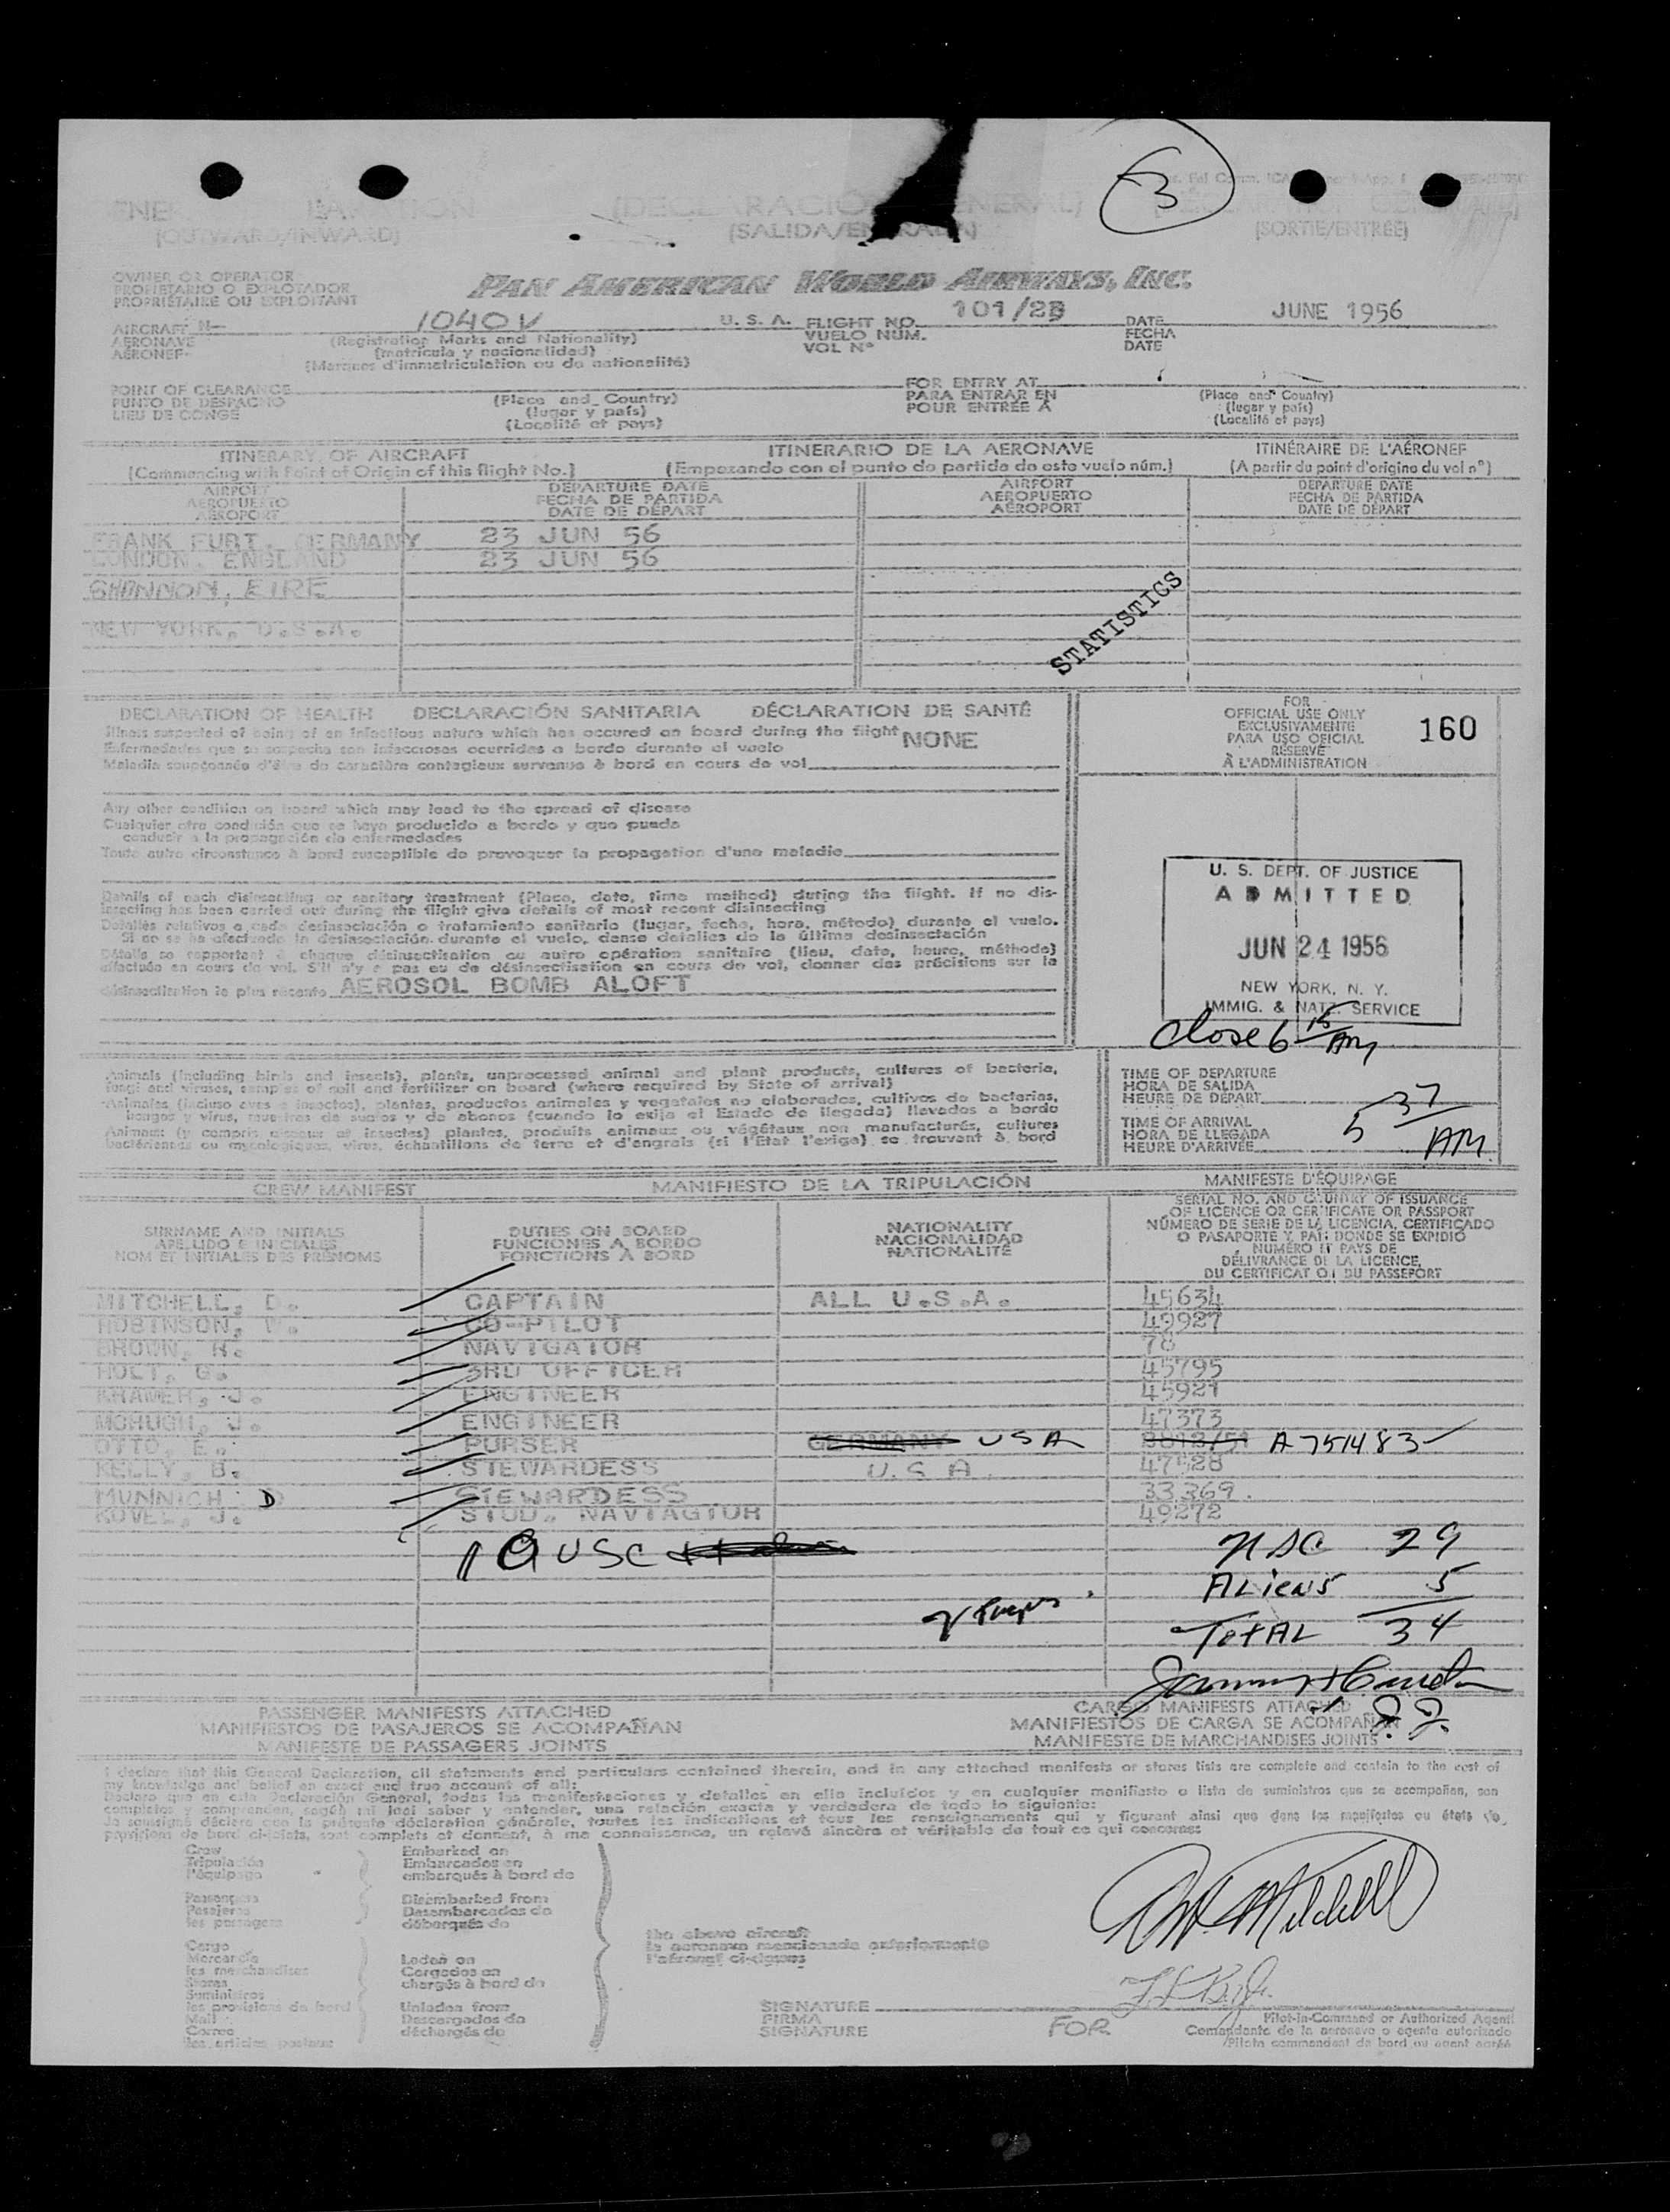 3
(DECLARACIÓN GENERAL)
(OUTWARD/INWARD) (SALIDA/ENTRADA) (SORTIE/ENTRÉE)
OWNER OR OPERATOR
PROPIETARIO O EXPLOTADOR
PROPRIÉTAIRE OU EXPLOITANT
PAN AMERICAN WORLD AIRWAYS, INC.
AIRCRAFT N- 1040V U. S. A. FLIGHT NO. 101/23 DATE JUNE 1956
AERONAVE (Registration Marks and Nationality) VUELO NÚM. FECHA
AÉRONEF (matrícula y nacionalidad) VOL Nº DATE
(Marques d'immatriculation ou de nationalité)
POINT OF CLEARANCE (Place and Country) FOR ENTRY AT (Place and Country)
PUNTO DE DESPACHO (lugar y país) PARA ENTRAR EN (lugar y país)
LIEU DE CONGÉ (Localité et pays) POUR ENTRÉE À (Localité et pays)
ITINERARY OF AIRCRAFT ITINERARIO DE LA AERONAVE ITINÉRAIRE DE L'AÉRONEF
(Commencing with Point of Origin of this flight No.) (Empezando con el punto de partida de este vuelo núm.) (A partir du point d'origine du vol nº)
AIRPORT DEPARTURE DATE AIRPORT DEPARTURE DATE
AEROPUERTO FECHA DE PARTIDA AEROPUERTO FECHA DE PARTIDA
AÉROPORT DATE DE DÉPART AÉROPORT DATE DE DÉPART
FRANK FURT, GERMANY 23 JUN 56
LONDON, ENGLAND 23 JUN 56
SHANNON, EIRE
NEW YORK, U.S.A.
STATISTICS
DECLARATION OF HEALTH DECLARACIÓN SANITARIA DÉCLARATION DE SANTÉ
Illness suspected of being of an infectious nature which has occured on board during the flight NONE
Enfermedades que se sospecha son infecciosas ocurridas a bordo durante el vuelo
Maladie soupçonnée d'être de caractère contagieux survenue à bord en cours de vol
FOR
OFFICIAL USE ONLY
EXCLUSIVAMENTE
PARA USO OFICIAL
RÉSERVÉ
À L'ADMINISTRATION
160
Any other condition on board which may lead to the spread of disease
Cualquier otra condición que se haya producido a bordo y que pueda
conducir a la propagación de enfermedades
Toute autre circonstance à bord susceptible de provoquer la propagation d'une maladie
Details of each disinsecting or sanitary treatment (Place, date, time method) during the flight. If no dis-
insecting has been carried out during the flight give details of most recent disinsecting
Detalles relativos a cada desinsectación o tratamiento sanitario (lugar, fecha, hora, método) durante el vuelo.
Si no se ha efectuado la desinsectación durante el vuelo, dense detalles de la última desinsectación
Détails se rapportant à chaque désinsectisation ou autre opération sanitaire (lieu, date, heure, méthode)
effectuée en cours de vol. S'il n'y a pas eu de désinsectisation en cours de vol, donner des précisions sur la
désinsectisation la plus récente AEROSOL BOMB ALOFT
U. S. DEPT. OF JUSTICE
ADMITTED
JUN 24 1956
NEW YORK, N. Y.
IMMIG. & NATZ. SERVICE
Close 6 15 AM
Animals (including birds and insects), plants, unprocessed animal and plant products, cultures of bacteria,
fungi and viruses, samples of soil and fertilizer on board (where required by State of arrival)
Animales (incluso aves e insectos), plantas, productos animales y vegetales no elaborados, cultivos de bacterias,
hongos y virus, muestras de suelos y de abonos (cuando lo exija el Estado de llegada) llevados a bordo
Animaux (y compris oiseaux et insectes) plantes, produits animaux ou végétaux non manufacturés, cultures
bactériennes ou mycologiques, virus, échantillons de terre et d'engrais (si l'État l'exige) se trouvant à bord
TIME OF DEPARTURE
HORA DE SALIDA
HEURE DE DÉPART
TIME OF ARRIVAL
HORA DE LLEGADA
HEURE D'ARRIVÉE
5 37 AM
CREW MANIFEST MANIFIESTO DE LA TRIPULACIÓN MANIFESTE D'ÉQUIPAGE
SURNAME AND INITIALS
APELLIDO E INICIALES
NOM ET INITIALES DES PRÉNOMS
DUTIES ON BOARD
FUNCIONES A BORDO
FONCTIONS À BORD
NATIONALITY
NACIONALIDAD
NATIONALITÉ
SERIAL NO. AND COUNTRY OF ISSUANCE
OF LICENCE OR CERTIFICATE OR PASSPORT
NÚMERO DE SERIE DE LA LICENCIA, CERTIFICADO
O PASAPORTE Y PAÍS DONDE SE EXPIDIÓ
NUMÉRO ET PAYS DE
DÉLIVRANCE DE LA LICENCE,
DU CERTIFICAT OU DU PASSEPORT
MITCHELL, D. CAPTAIN ALL U.S.A. 45634
ROBINSON, W. CO-PILOT 49927
BROWN, R. NAVIGATOR 78
HOLT, G. 3RD OFFICER 45795
KRAMER, J. ENGINEER 45921
MCHUGH, J. ENGINEER 47373
OTTO, E. PURSER GERMANY USA A751483
KELLY, B. STEWARDESS U.S.A. 47528
MUNNICH D STEWARDESS 33369.
KOVEL, J. STUD. NAVIAGTOR 49272
10 USC
USC 29
ALiENS 5
TOTAL 34
PASSENGER MANIFESTS ATTACHED CARGO MANIFESTS ATTACHED
MANIFIESTOS DE PASAJEROS SE ACOMPAÑAN MANIFIESTOS DE CARGA SE ACOMPAÑAN
MANIFESTE DE PASSAGERS JOINTS MANIFESTE DE MARCHANDISES JOINTS
I declare that this General Declaration, all statements and particulars contained therein, and in any attached manifests or stores lists are complete and contain to the best of
my knowledge and belief an exact and true account of all:
Declaro que en esta Declaración General, todas las manifestaciones y detalles en ella incluídos y en cualquier manifiesto o lista de suministros que se acompañen, son
completos y comprenden, según mi leal saber y entender, una relación exacta y verdadera de todo lo siguiente:
Je soussigné déclare que la présente déclaration générale, toutes les indications et tous les renseignements qui y figurent ainsi que dans les manifestes ou états de
provisions de bord ci-joints, sont complets et donnent, à ma connaissance, un relevé sincère et véritable de tout ce qui concerne:
Crew Embarked on
Tripulación Embarcados en
l'équipage embarqués à bord de
Passengers Disembarked from
Pasajeros Desembarcados de
les passagers débarqués de
the above aircraft
la aeronave mencionada anteriormente
l'aéronef ci-dessus
Cargo
Mercancía Laden on
les marchandises Cargados en
Stores chargés à bord de
Suministros
les provisions de bord Unladen from
Mail Descargados de
Correo déchargés de
les articles postaux
SIGNATURE
FIRMA
SIGNATURE
FOR
Pilot-in-Command or Authorized Agent
Comandante de la aeronave o agente autorizado
Pilote commandant de bord ou agent agréé